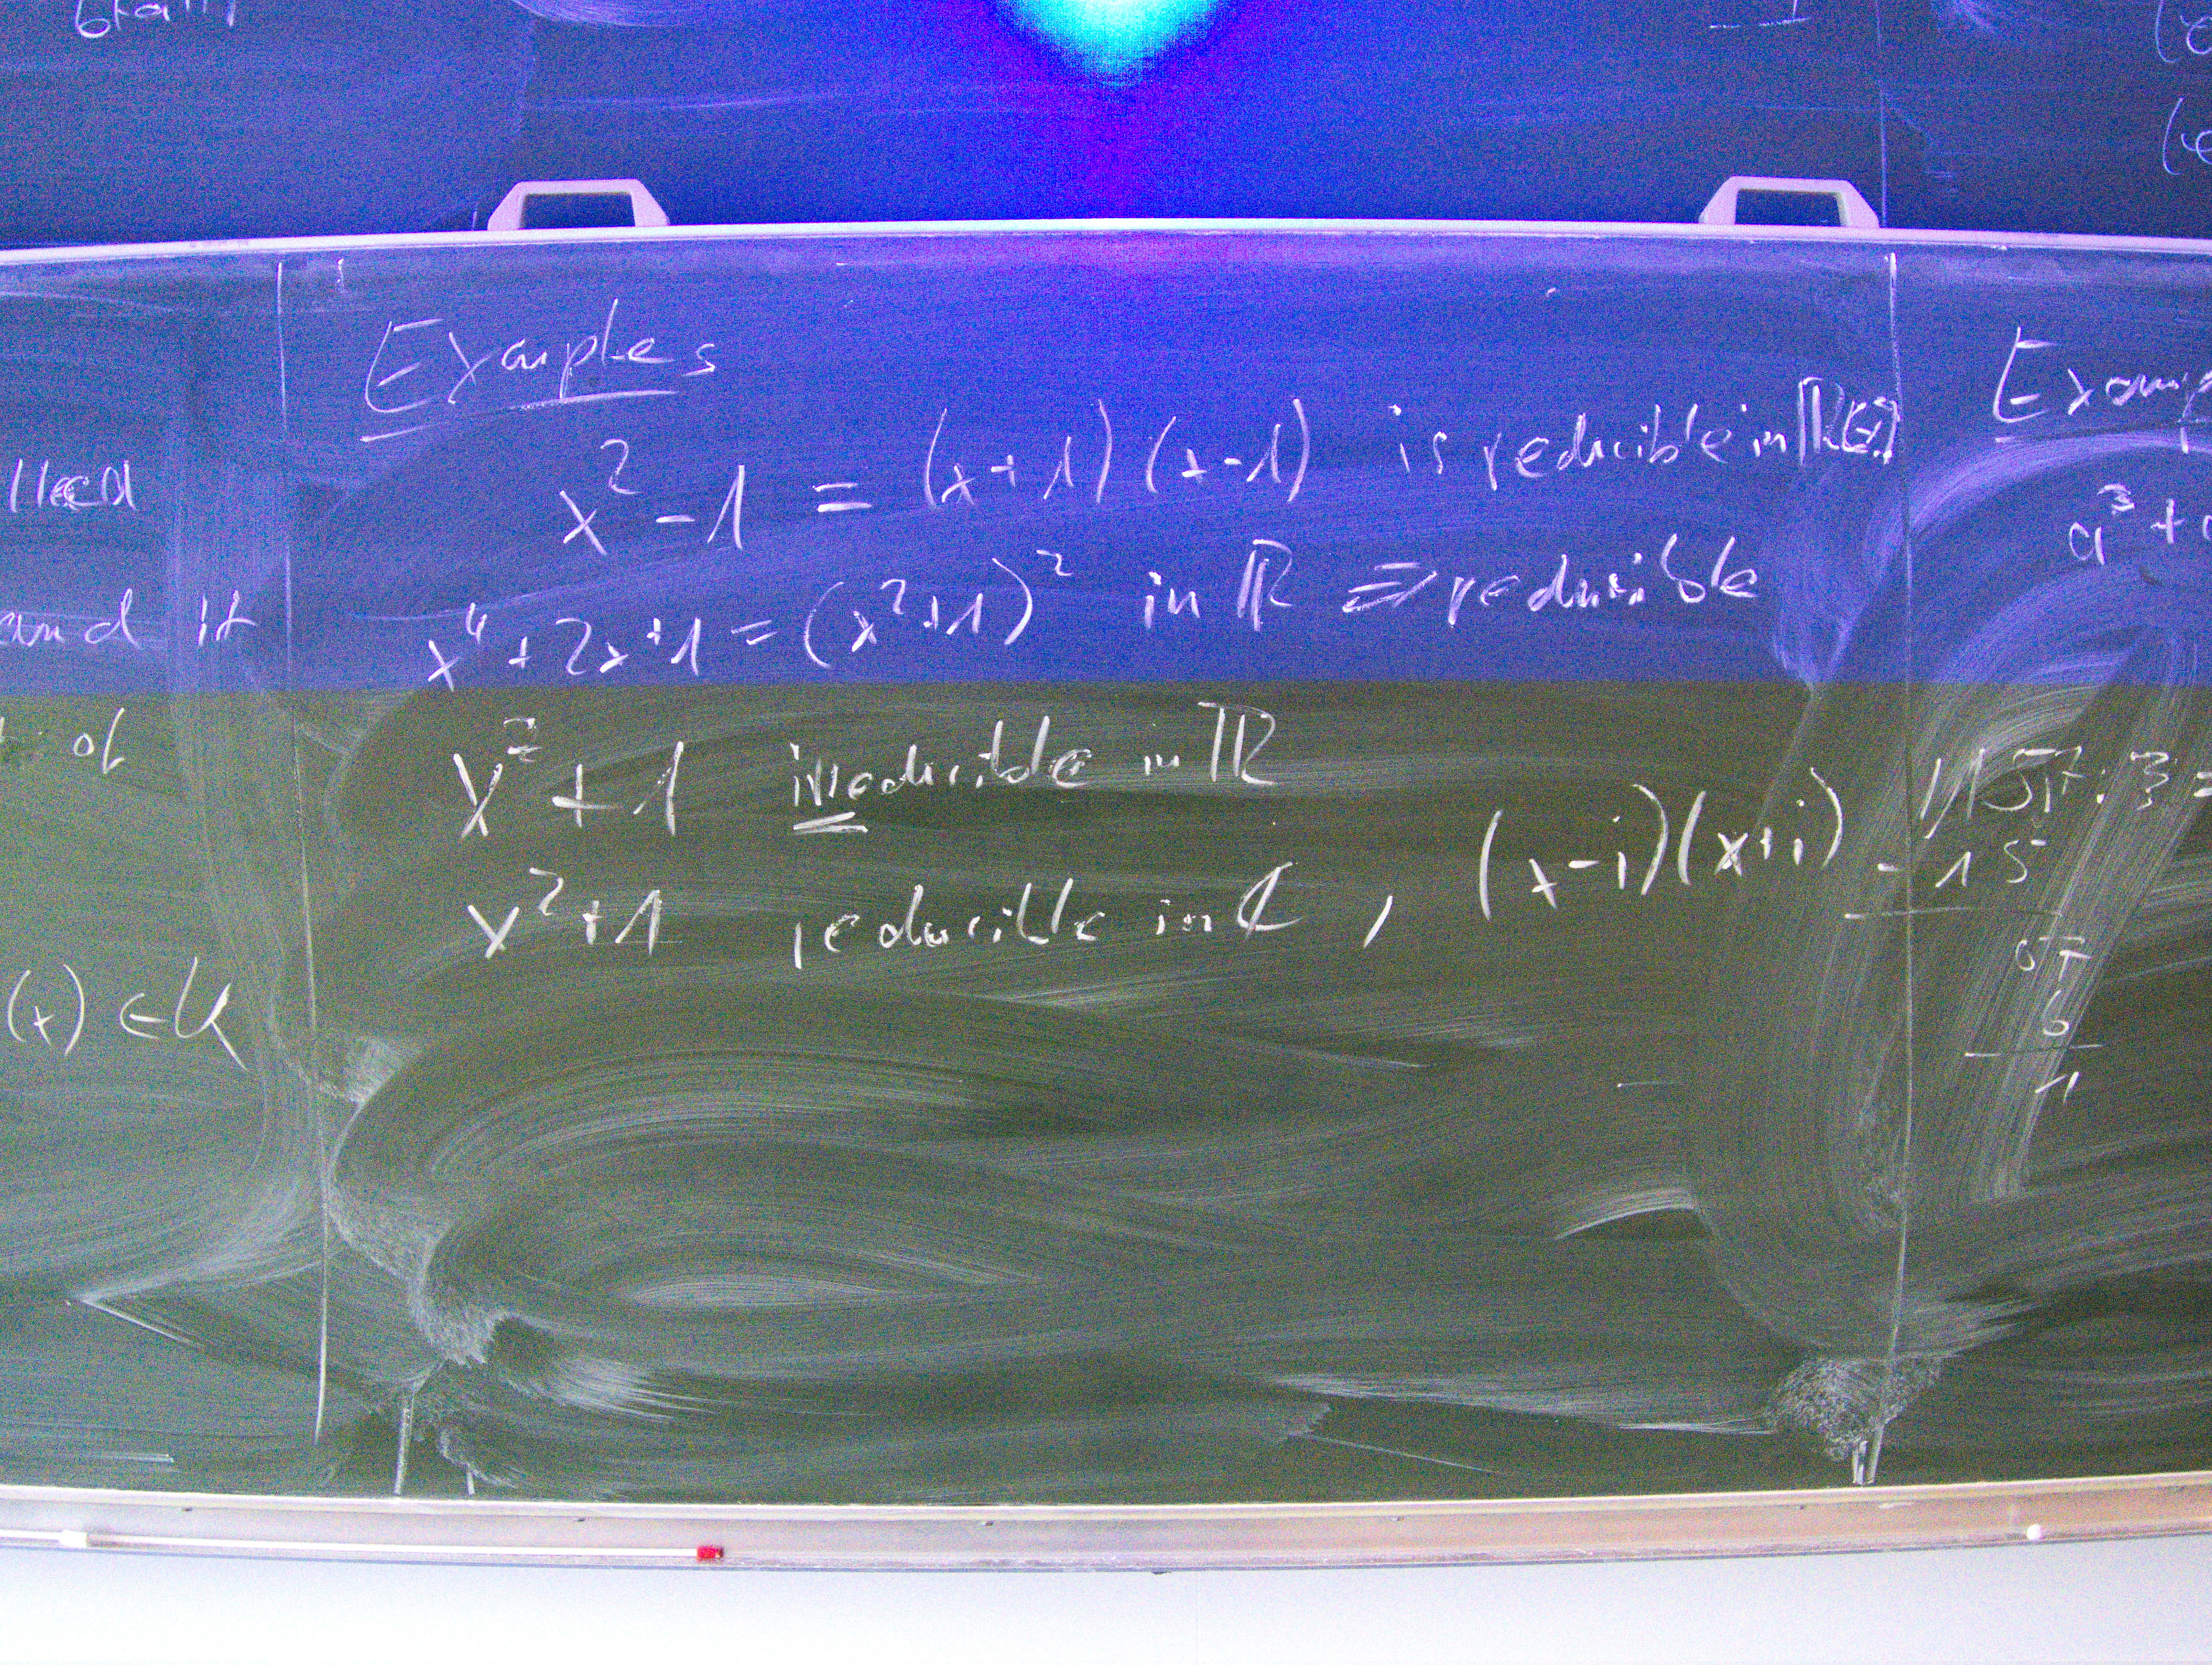 lled
and it
of
(x) ∈ K
Examples
x² - 1 = (x+1)(x-1) is reducible in ℝ[x]
x⁴ + 2x + 1 = (x²+1)² in ℝ ⇒ reducible
x² + 1 irreducible in ℝ
x² + 1 reducible in ℂ, (x-i)(x+i)
Examp
a³ +
157 : 3 =
- 15
07
6
1